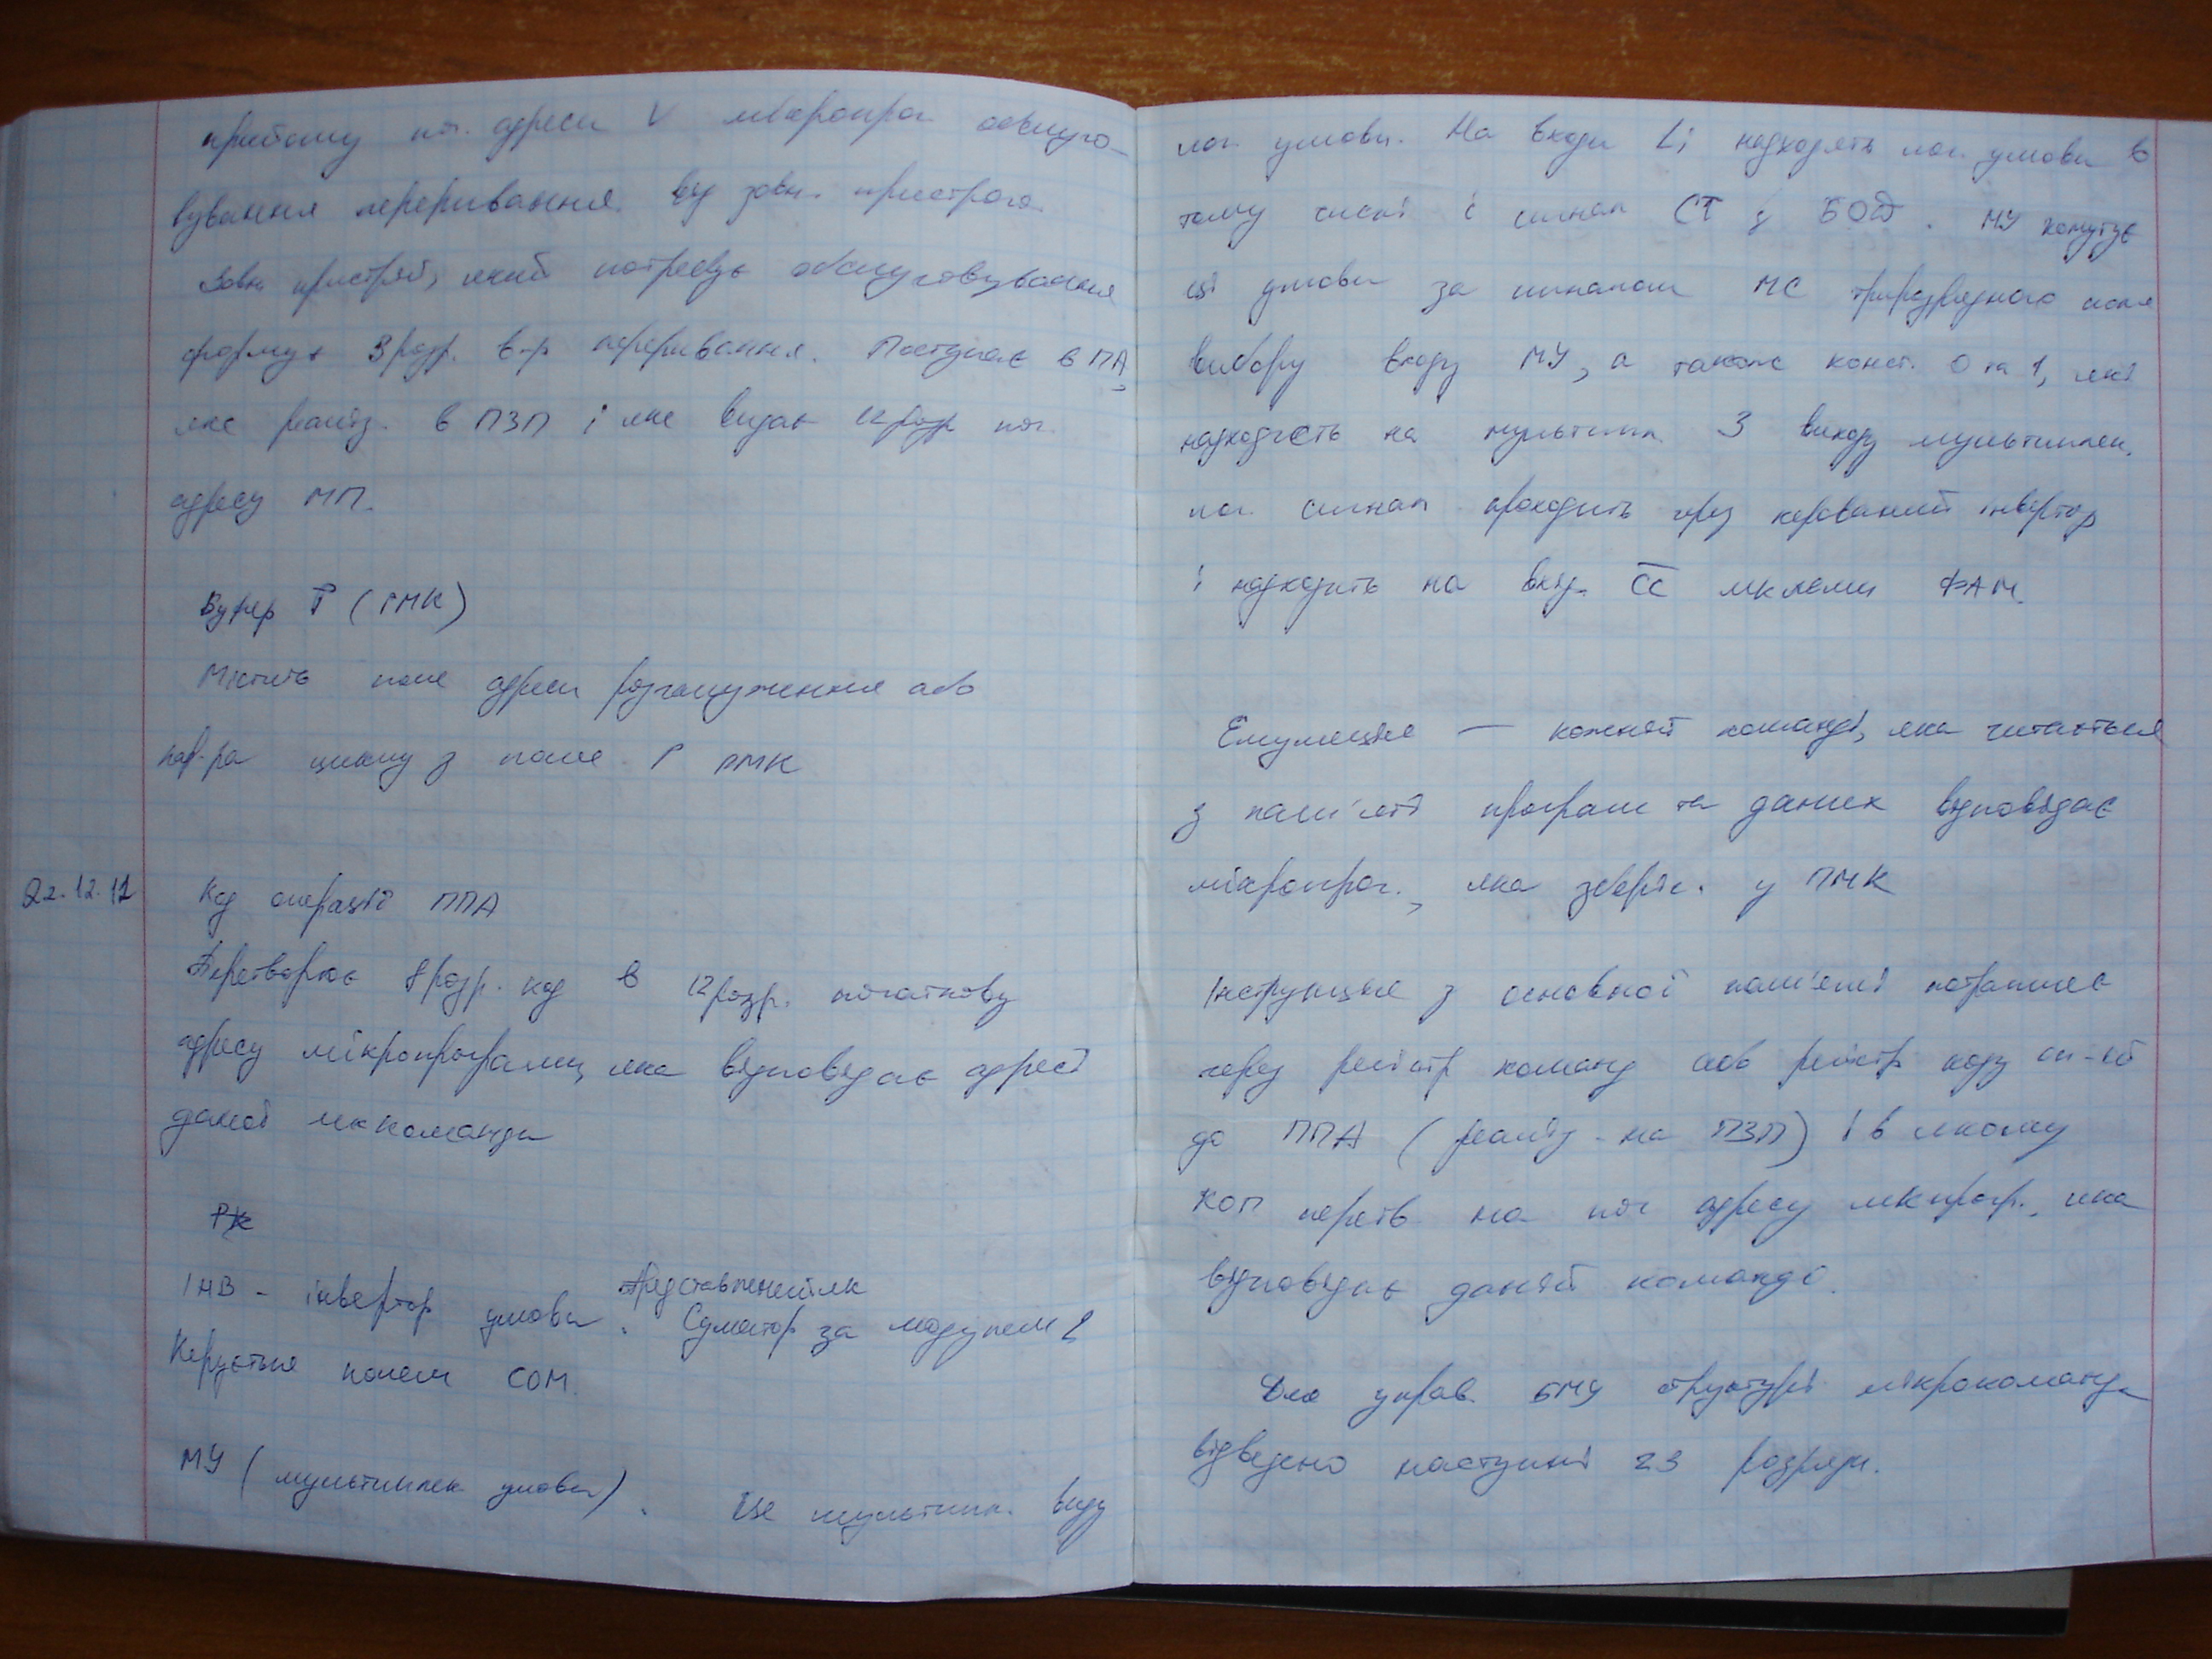 прийому поч. адреси V мікропрог. обслуго-
вування переривання від зовн. пристрою
Зовн. пристрій, який потребує обслуговування
формує 3 розр. в-р переривання. Поступає в ПА,
яке реаліз. в ПЗП і яке видає 12 розр поч.
адресу МП.
Буфер Р (РМК)
Містить поле адреси розгалуження або
пар-ра циклу з поля Р РМК
22.12.11
Код операції ППА
Перетворює 8 розр. код в 12 розр. початкову
адресу мікропрограми, яка відповідає адресі
даної мккоманди
ІНВ - інвертор умови. Представлений як
Суматор за модулем 2
Керується полем СОМ.
МУ (мультиплек умови). Це мультипл. виду
лог. умови. На входи Li надходять лог. умови в
тому числі і сигнал СТ з БОД. МУ комутує
ці умови за сигналом МС трирозрядного поля
вибору входу МУ, а також конст. 0 та 1, які
надходять на мультипл. З виходу мультиплек.
лог. сигнал проходить через керований інвертор
і надходить на вхід. CC мксхеми ФАМ.
Емуляція — кожній команді, яка читається
з пам'яті програм та даних відповідає
мікропрог., яка зберіг. у ПМК
Інструкція з основної пам'яті потрапляє
через регістр команд або регістр коду оп-ій
до ППА (реаліз. на ПЗП) і в якому
КОП перетв. на поч адресу мкпрогр., яка
відповідає даній команді.
Для управ. БМУ структурі мікрокоманд
відведено наступні 23 розряди.